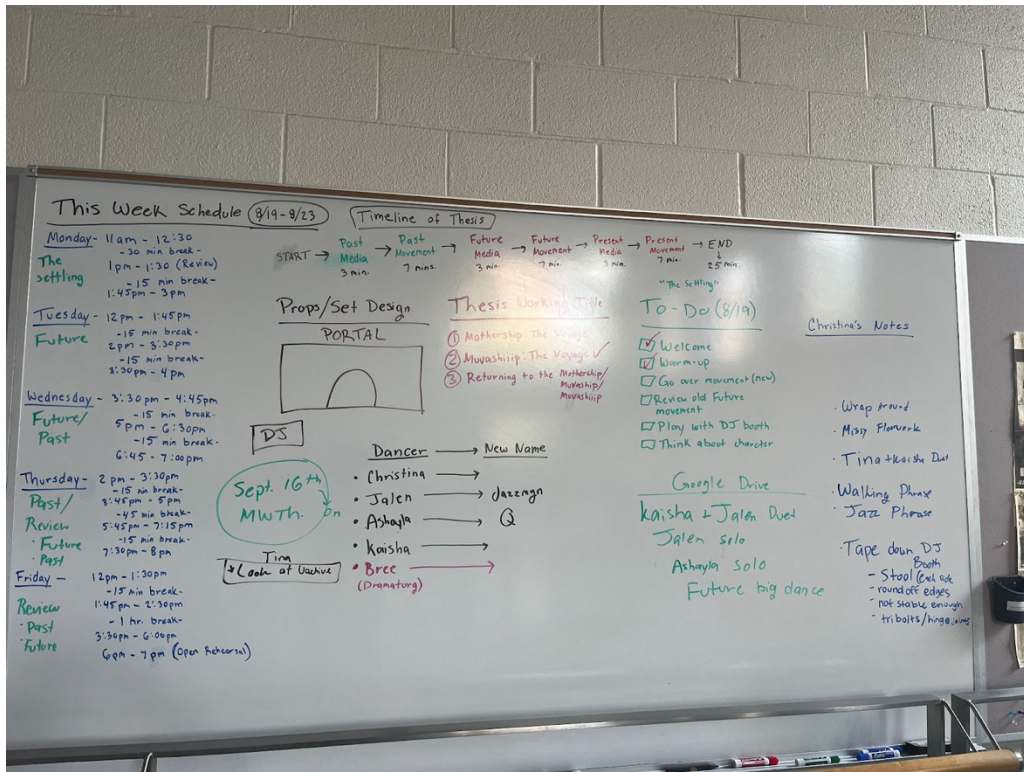 This Week Schedule (8/19-8/23)
Monday - 11am - 12:30
-30 min break-
The settling
1pm - 1:30 (Review)
-15 min break-
1:45pm - 3pm
Tuesday - 12pm - 1:45pm
Future
-15 min break-
2pm - 3:30pm
-15 min break-
3:30pm - 4pm
Wednesday - 3:30pm - 4:45pm
Future/
Past
-15 min break-
5pm - 6:30pm
-15 min break-
6:45 - 7:00pm
Thursday - 2pm - 3:30pm
Past/
Review
· Future
· Past
-15 min break-
3:45pm - 5pm
-45 min break-
5:45pm - 7:15pm
-15 min break-
7:30pm - 8pm
Friday - 12pm - 1:30pm
Review
· Past
· Future
-15 min break-
1:45pm - 2:30pm
- 1 hr. break-
3:30pm - 6:00pm
6pm - 7pm (Open Rehearsal)
Timeline of Thesis
START → Past Media → Past Movement → Future Media → Future Movement → Present Media → Present Movement → END
3 min. 7 mins. 3 min. 7 min. 3 min. 7 min. 25 min.
"The Settling"
Props/Set Design
PORTAL
DJ
Sept. 16th
MWTh. on
Tina
* Look at
Thesis Working Title
① Mothership: The Voyage
② Muvashiiip: The Voyage ✓
③ Returning to the Mothership/
Muvaship/
Muvashiiip
Dancer → New Name
· Christina →
· Jalen → Jazzmyn
· Ashayla → Q
· Kaisha →
· Bree →
(Dramaturg)
To-Do (8/19)
☑ Welcome
☑ Warm-up
☐ Go over movement (new)
☐ Review old Future
movement
☐ Play with DJ booth
☐ Think about character
Google Drive
Kaisha + Jalen Duet
Jalen solo
Ashayla solo
Future big dance
Christina's Notes
· Wrap around
· Missy Floorwork
· Tina + Kaisha Duet
· Walking Phrase
· Jazz Phrase
· Tape down DJ
Booth
- Stool (Each side
- round off edges
- not stable enough
- tri bolts/hinge joints